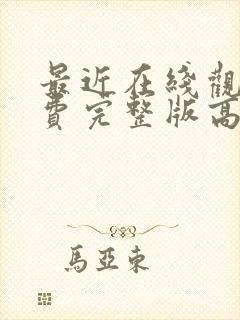 最近在线觀
費完整版高
馬亞東